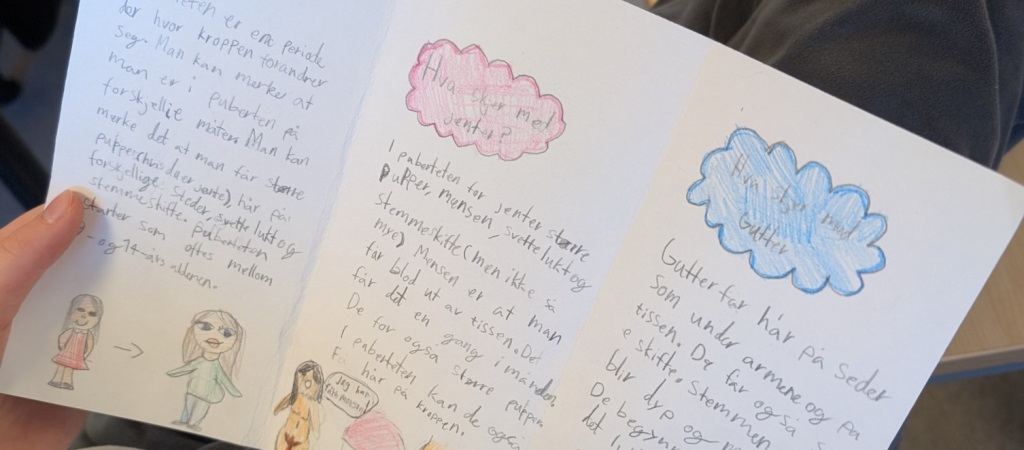 er en periode
der hvor kroppen forandrer
seg. Man kan merker at
man er i puberten på
forskjellie måter. Man kan
merke det at man får større
pupper(hvis du er jente), hår på
forskjellige steder, svette lukt og
stemmeskifte. Puberteten
starter som oftes mellom
-og 14-års alderen.
Hva skjer med
jenter?
I puberteten for jenter større
pupper, mensen, svette lukt og
stemmeskifte (men ikke så
mye) Mensen er at man
får blod ut av tissen. De
får det en gang i måneden.
De for også større pupper
I puberteten kan de også
Få hår på kroppen.
Jeg har
Hva skjer med
Gutter
Gutter får hår på seder
som under armene og på
tissen. De får også s
e skifte. Stemmen
blir dyp og m
De begyn
det l